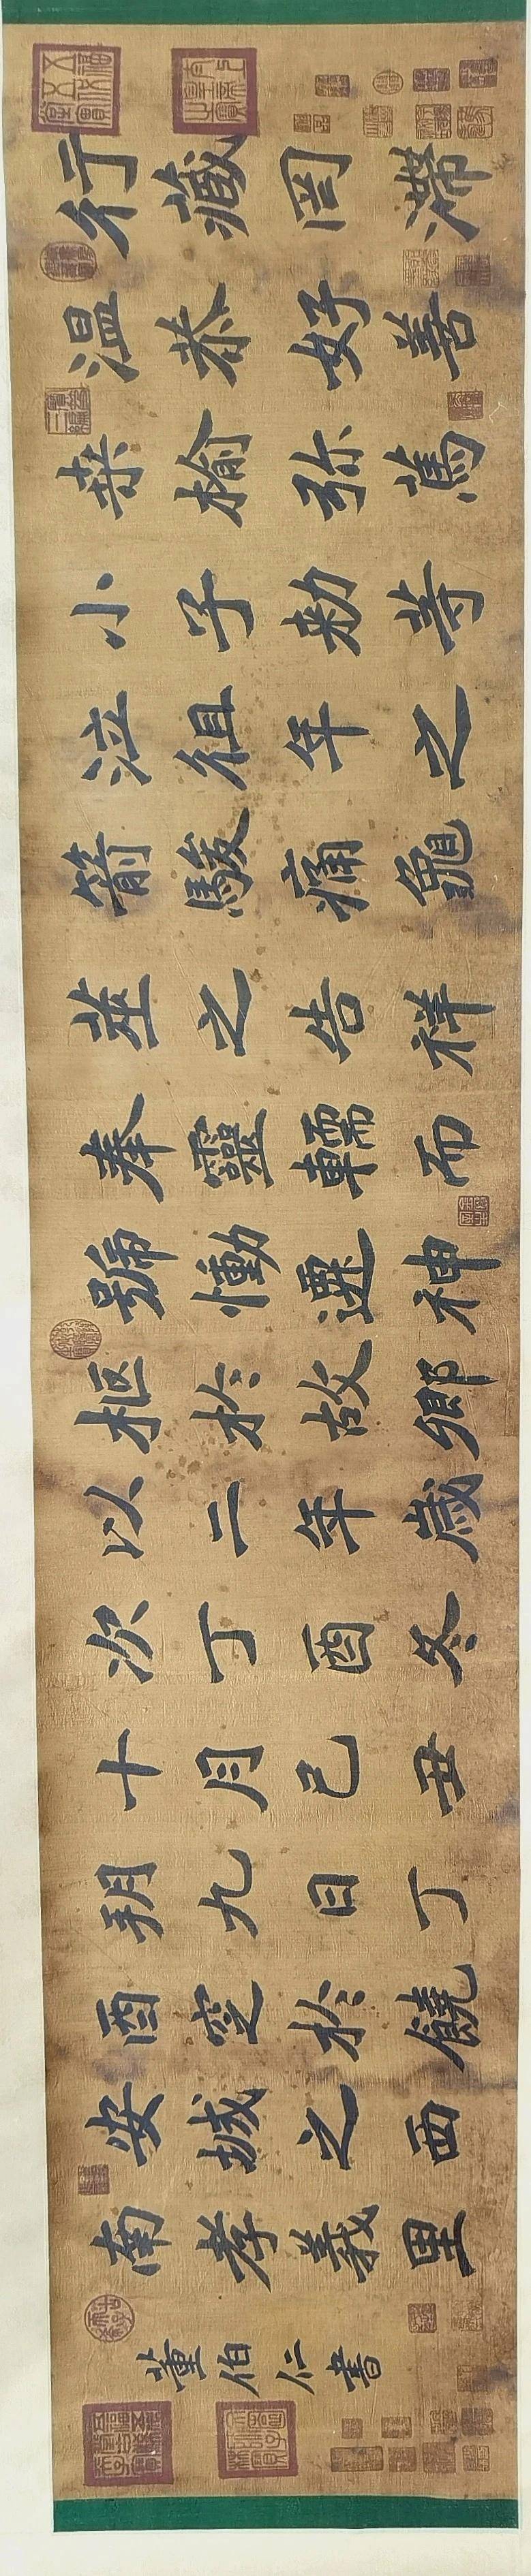 行藏罔滯
温恭好善
桒榆弥篤
小子勑等
泣徂年之
箭駿痛龜
筮之告祥
奉靈輀而
號慟遷神
柩於故鄉
以二年歲
次丁酉冬
十月己丑
朔九日丁
酉窆於饒
安城之西
南孝義里
董伯仁書